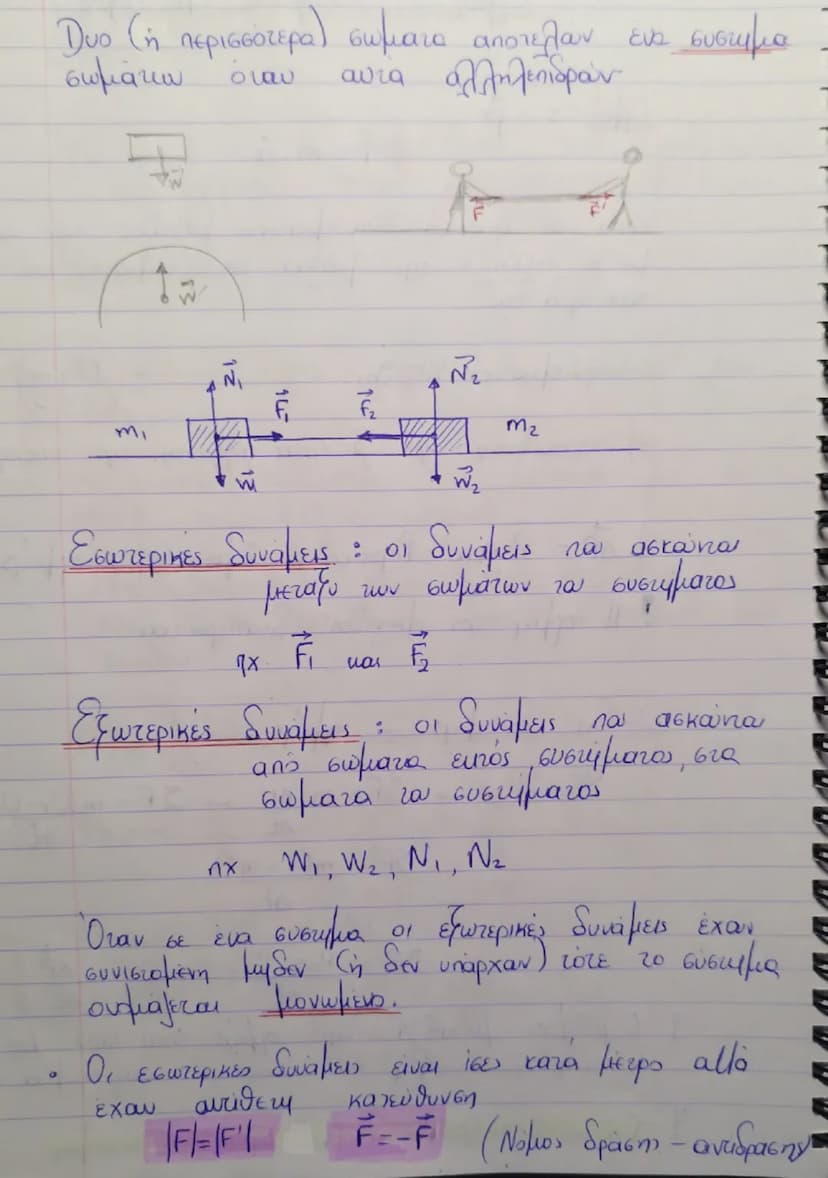 Δυο (ή περισσότερα) σώματα αποτελούν ένα σύστημα
σωμάτων όταν αυτά αλληλεπιδρούν
W
F F'
W
N₁ N₂
m₁ F₁ F₂ m₂
W₁ W₂
Εσωτερικές δυνάμεις : οι δυνάμεις που ασκούνται
μεταξύ των σωμάτων του συστήματος
πχ F₁ και F₂
Εξωτερικές δυνάμεις : οι δυνάμεις που ασκούνται
από σώματα εκτός συστήματος, στα
σώματα του συστήματος
πχ W₁, W₂, N₁, N₂
Όταν σε ένα σύστημα οι εξωτερικές δυνάμεις έχουν
συνισταμένη μηδέν (ή δεν υπάρχουν) τότε το σύστημα
ονομάζεται μονωμένο.
• Οι εσωτερικές δυνάμεις είναι ίσες κατά μέτρο αλλά
έχουν αντίθετη κατεύθυνση
|F|=|F'| F=-F' (Νόμος δράσης - αντίδρασης)